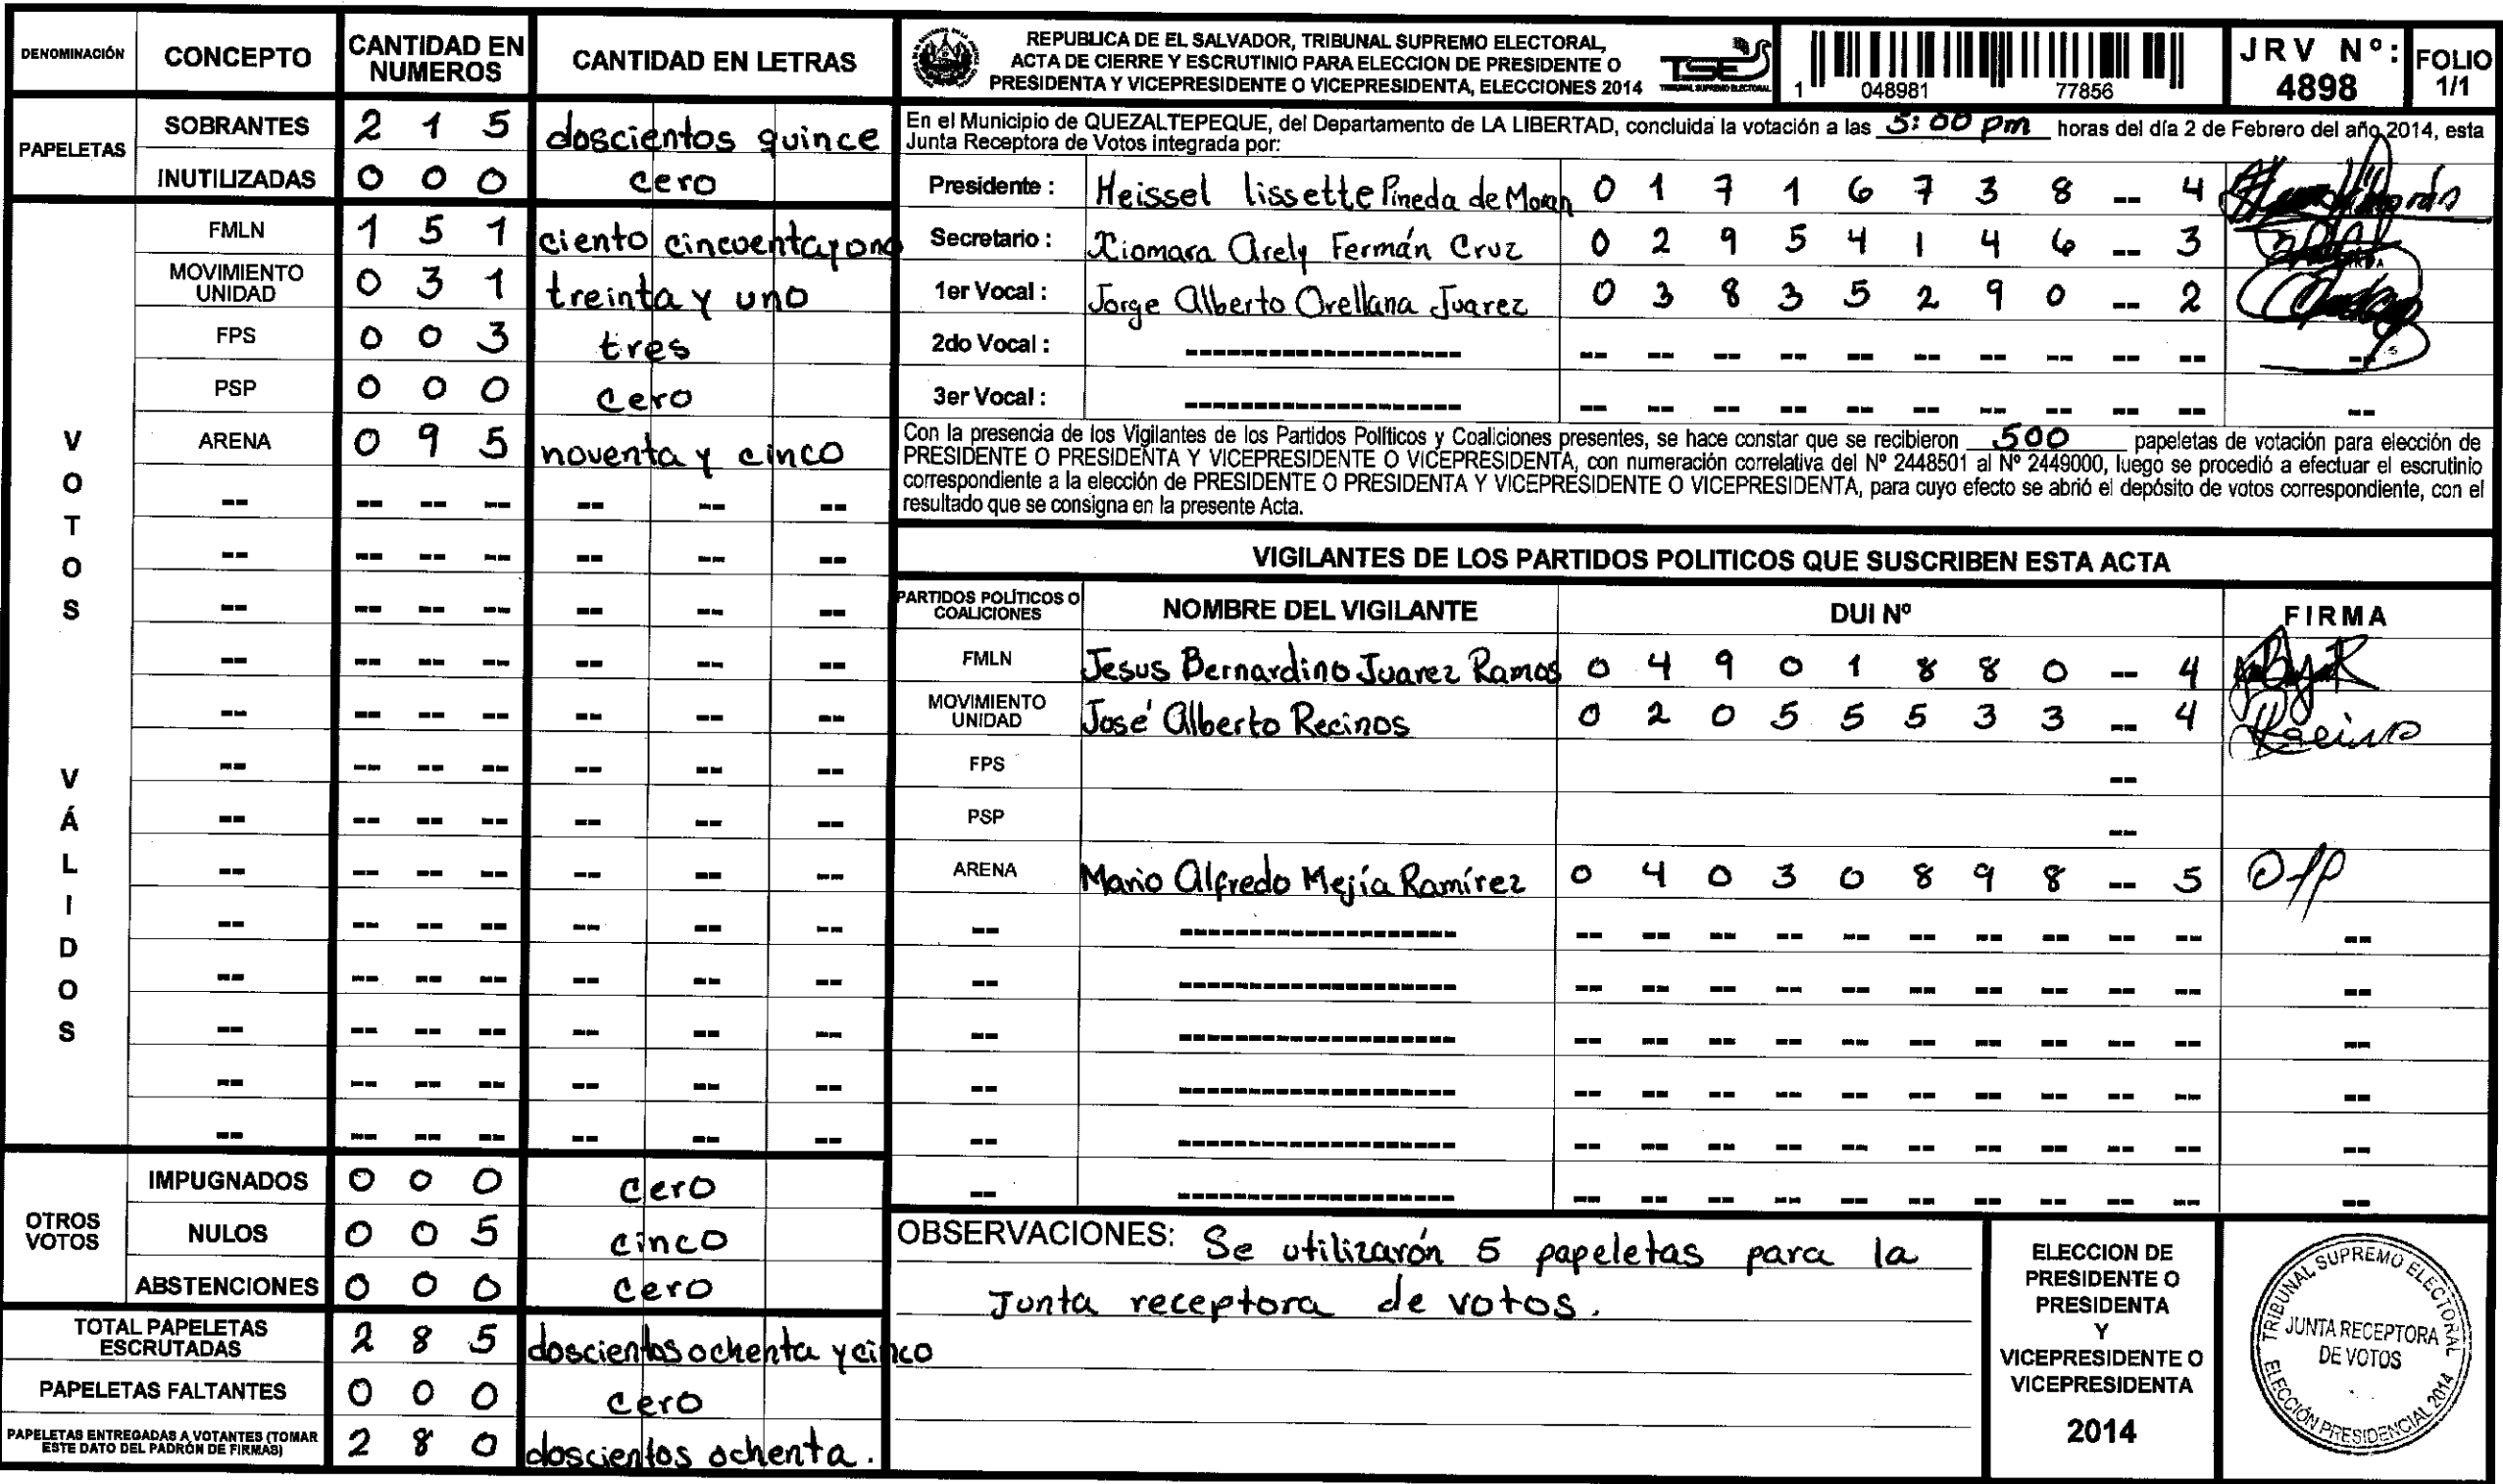 DENOMINACIÓN CONCEPTO CANTIDAD EN NUMEROS CANTIDAD EN LETRAS
PAPELETAS
SOBRANTES 2 1 5 doscientos quince
INUTILIZADAS 0 0 0 cero
VOTOS VÁLIDOS
FMLN 1 5 1 ciento cincuenta y uno
MOVIMIENTO UNIDAD 0 3 1 treinta y uno
FPS 0 0 3 tres
PSP 0 0 0 cero
ARENA 0 9 5 noventa y cinco
OTROS VOTOS
IMPUGNADOS 0 0 0 cero
NULOS 0 0 5 cinco
ABSTENCIONES 0 0 0 cero
TOTAL PAPELETAS ESCRUTADAS 2 8 5 doscientos ochenta y cinco
PAPELETAS FALTANTES 0 0 0 cero
PAPELETAS ENTREGADAS A VOTANTES (TOMAR ESTE DATO DEL PADRÓN DE FIRMAS) 2 8 0 doscientos ochenta.
REPUBLICA DE EL SALVADOR, TRIBUNAL SUPREMO ELECTORAL,
ACTA DE CIERRE Y ESCRUTINIO PARA ELECCION DE PRESIDENTE O
PRESIDENTA Y VICEPRESIDENTE O VICEPRESIDENTA, ELECCIONES 2014
TSE
TRIBUNAL SUPREMO ELECTORAL
1 048981 77856
JRV Nº: 4898
FOLIO 1/1
En el Municipio de QUEZALTEPEQUE, del Departamento de LA LIBERTAD, concluida la votación a las 5:00 pm horas del día 2 de Febrero del año 2014, esta
Junta Receptora de Votos integrada por:
Presidente : Heissel lissette Pineda de Moran 0 1 7 1 6 7 3 8 -- 4
Secretario : Xiomara Arely Fermán Cruz 0 2 9 5 4 1 4 6 -- 3
1er Vocal : Jorge Alberto Orellana Juarez 0 3 8 3 5 2 9 0 -- 2
2do Vocal :
3er Vocal :
Con la presencia de los Vigilantes de los Partidos Políticos y Coaliciones presentes, se hace constar que se recibieron 500 papeletas de votación para elección de
PRESIDENTE O PRESIDENTA Y VICEPRESIDENTE O VICEPRESIDENTA, con numeración correlativa del Nº 2448501 al Nº 2449000, luego se procedió a efectuar el escrutinio
correspondiente a la elección de PRESIDENTE O PRESIDENTA Y VICEPRESIDENTE O VICEPRESIDENTA, para cuyo efecto se abrió el depósito de votos correspondiente, con el
resultado que se consigna en la presente Acta.
VIGILANTES DE LOS PARTIDOS POLITICOS QUE SUSCRIBEN ESTA ACTA
PARTIDOS POLÍTICOS O COALICIONES NOMBRE DEL VIGILANTE DUI Nº FIRMA
FMLN Jesus Bernardino Juarez Ramos 0 4 9 0 1 8 8 0 -- 4
MOVIMIENTO UNIDAD José Alberto Recinos 0 2 0 5 5 5 3 3 -- 4
FPS --
PSP --
ARENA Mario Alfredo Mejía Ramírez 0 4 0 3 0 8 9 8 -- 5
OBSERVACIONES: Se utilizarón 5 papeletas para la
Junta receptora de votos.
ELECCION DE
PRESIDENTE O
PRESIDENTA
Y
VICEPRESIDENTE O
VICEPRESIDENTA
2014
TRIBUNAL SUPREMO ELECTORAL
JUNTA RECEPTORA
DE VOTOS
ELECCIÓN PRESIDENCIAL 2014